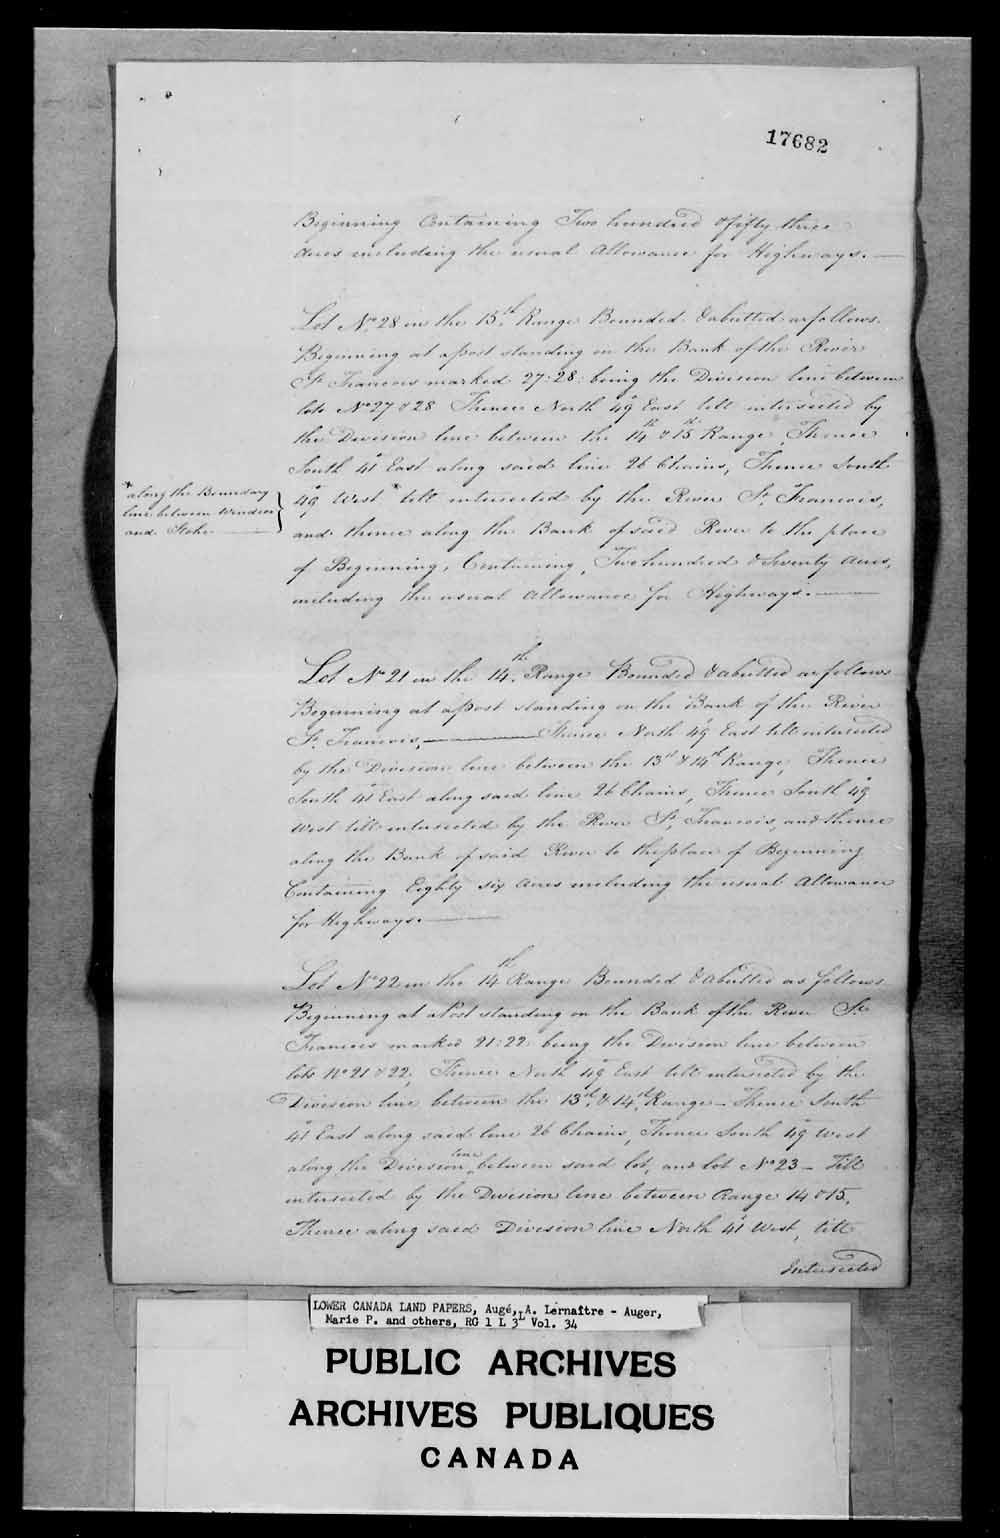 17682
Beginning Containing Two hundred & fifty three
Acres including the usual Allowance for Highways.
Lot No. 28 in the 15th Range Bounded & abutted as follows.
Beginning at a post standing on the Bank of the River
St. Francois marked 27:28: being the Division line between
lots No 27 & 28 Thence North 49° East till intersected by
the Division line between the 14th & 15th Range, Thence
South 41° East along said line 26 Chains, Thence South
* along the Boundary
line between Windsor
and Stoke
49° West * till intersected by the River St. Francois,
and thence along the Bank of said River to the place
of Beginning, Containing, Two hundred & Seventy Acres,
including the usual Allowance for Highways.
Lot No 21 in the 14th Range Bounded & abutted as follows
Beginning at a post standing on the Bank of the River
St. Francois, Thence North 49° East till intersected
by the Division line between the 13th & 14th Range, Thence
South 41° East along said line 26 Chains, Thence South 49°
West till intersected by the River St. Francois, and thence
along the Bank of said River to the place of Beginning
Containing Eighty six Acres including the usual Allowance
for Highways.
Lot No 22 in the 14th Range Bounded & Abutted as follows
Beginning at a Post standing on the Bank of the River St.
Francois marked 21:22: being the Division line between
lots No 21 & 22, Thence North 49° East till intersected by the
Division line between the 13th & 14th Range - Thence South
41° East along said line 26 Chains, Thence South 49° West
along the Division line between said lot, and lot No 23 - Till
intersected by the Division line between Range 14 & 15,
Thence along said Division line North 41° West, till
Intersected
LOWER CANADA LAND PAPERS, Augé, A. Lernaître - Auger,
Marie P. and others, RG 1 L 3L Vol. 34
PUBLIC ARCHIVES
ARCHIVES PUBLIQUES
CANADA